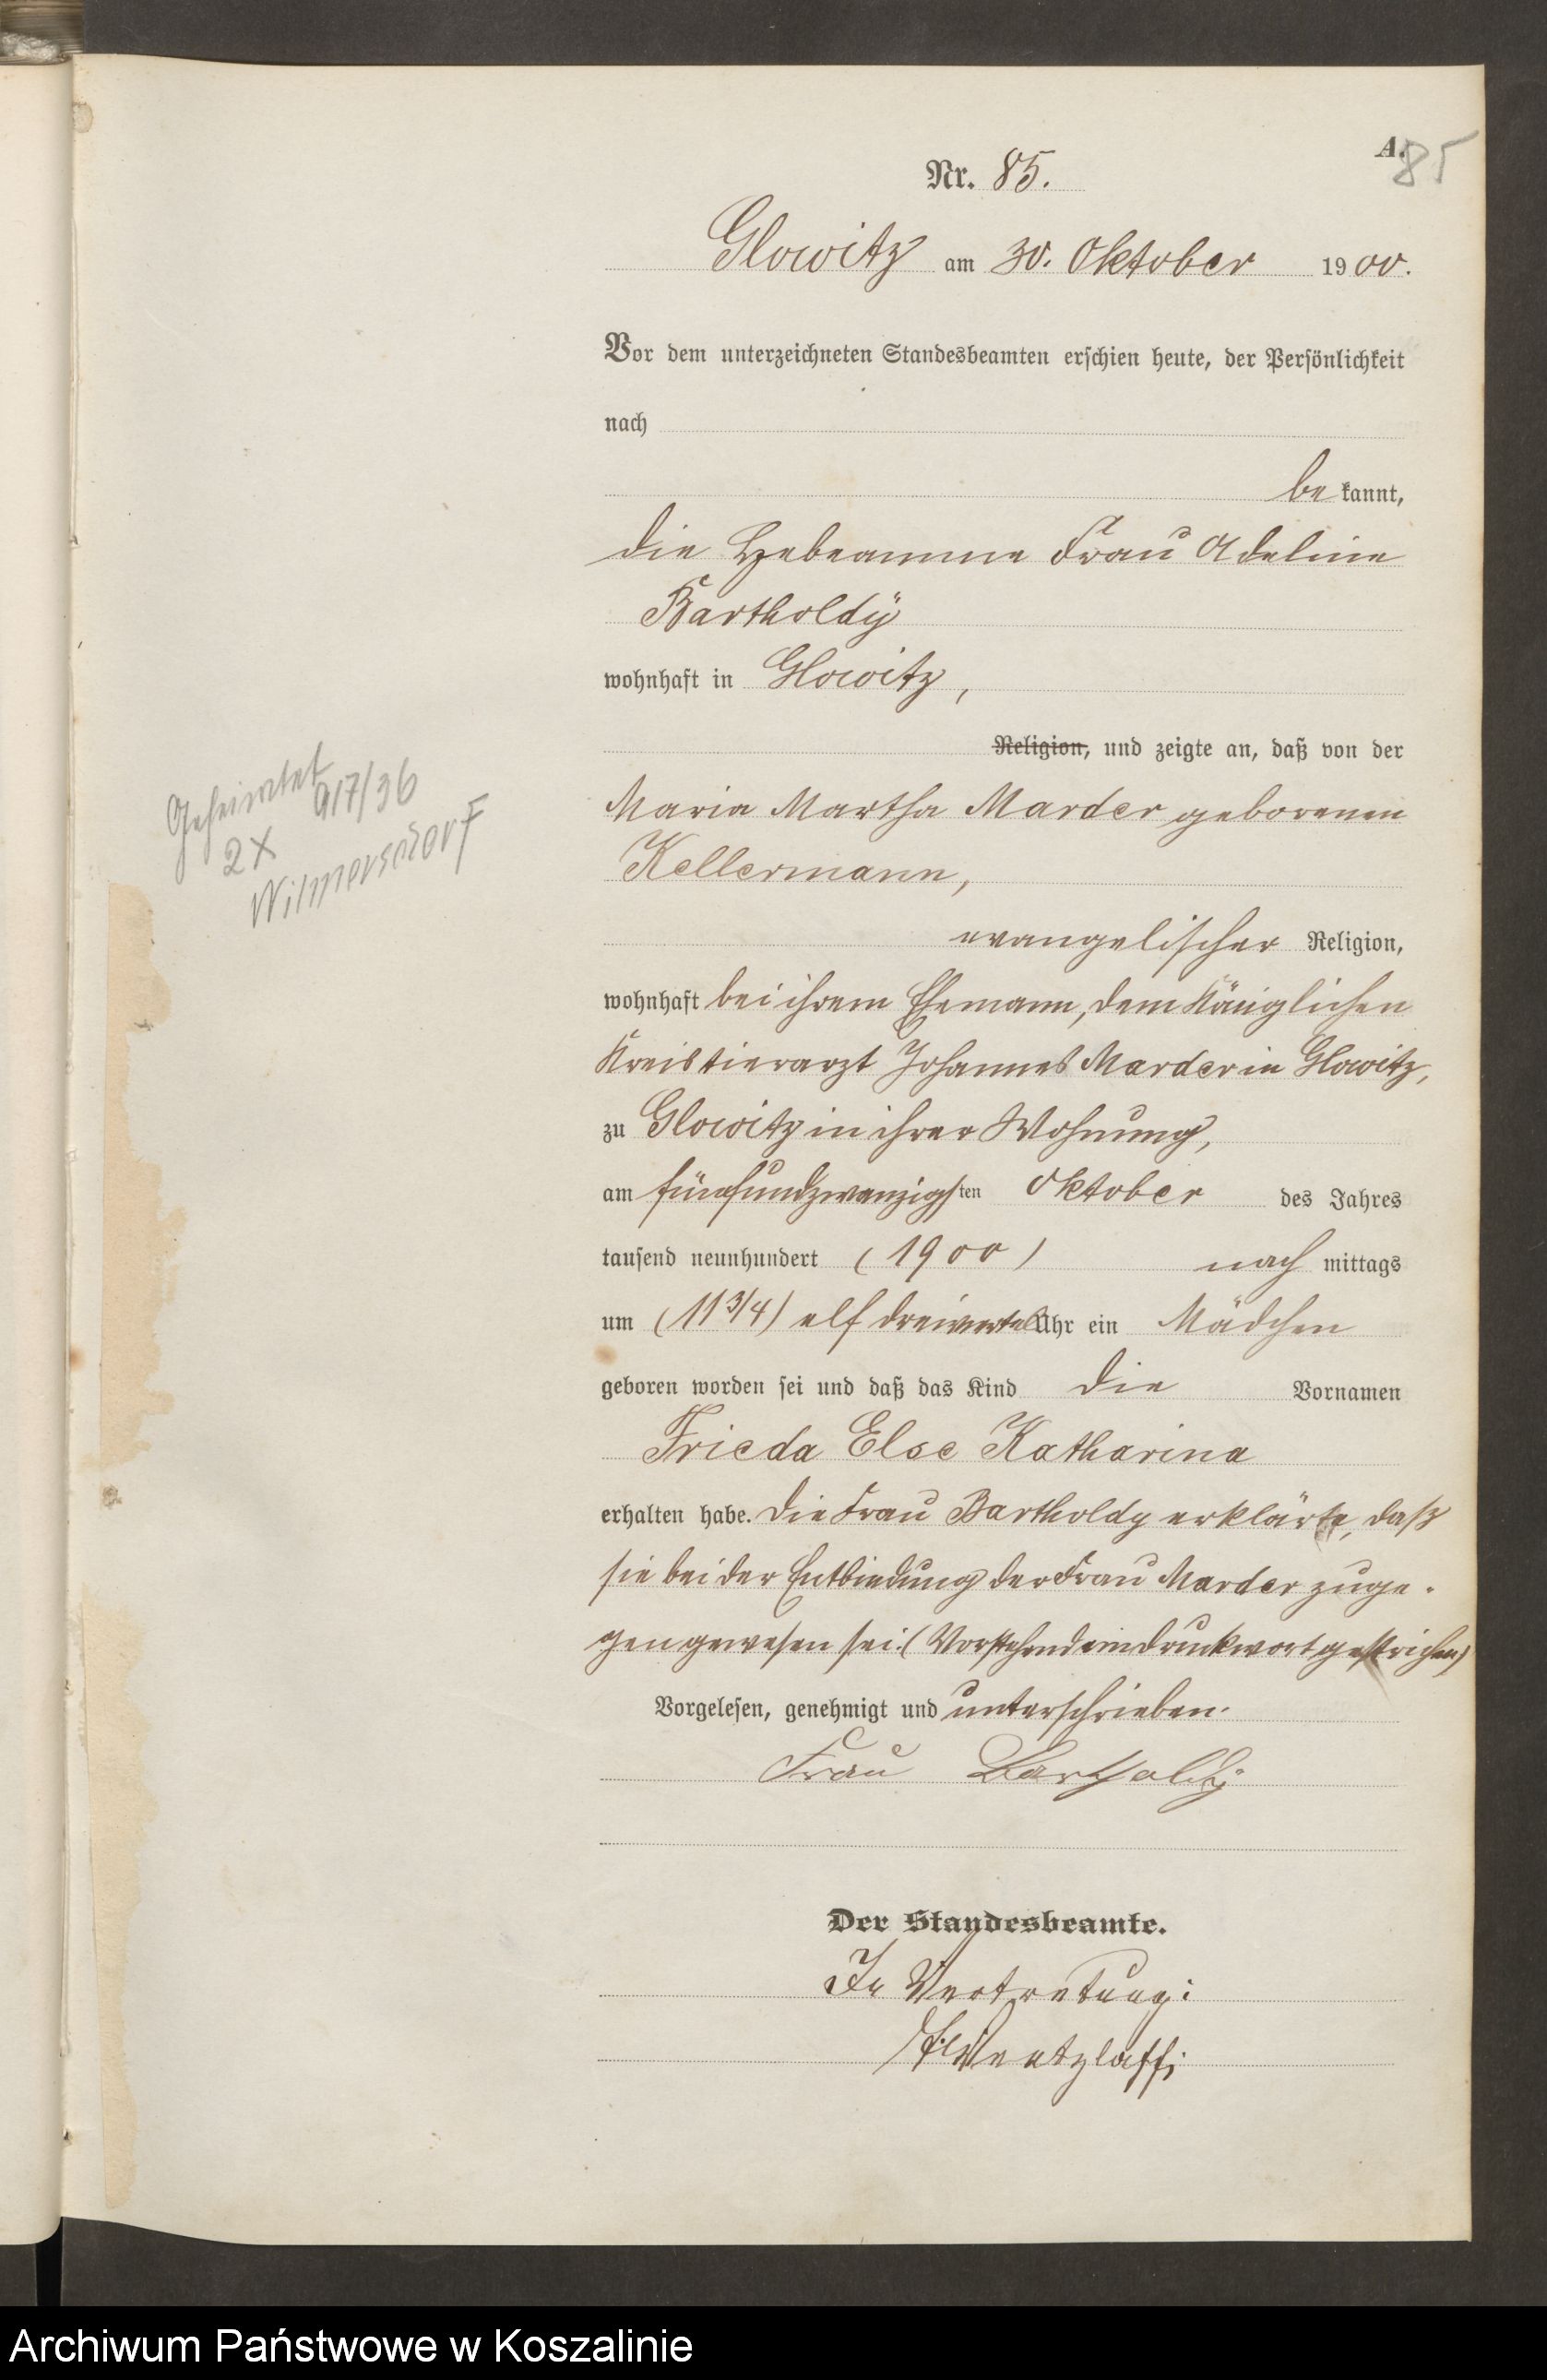 A.
85
Nr. 85.
Glowitz am 30. Oktober 1900.
Vor dem unterzeichneten Standesbeamten erschien heute, der Persönlichkeit
nach
bekannt,
die Hebeamme Frau Adeline
Bartholdÿ
wohnhaft in Glowitz,
Religion, und zeigte an, daß von der
Maria Martha Marder geborenen
Kellermann,
evangelischer Religion,
wohnhaft bei ihrem Ehemann, dem Königlichen
Kreistierarzt Johannes Marder in Glowitz,
zu Glowitz in ihrer Wohnung,
am fünfundzwanzigsten Oktober des Jahres
tausend neunhundert (1900) nachmittags
um (11 3/4) elf dreiviertel Uhr ein Mädchen
geboren worden sei und daß das Kind die Vornamen
Frieda Else Katharina
erhalten habe. Die Frau Bartholdy erklärte, daß
sie bei der Entbindung der Frau Marder zuge-
gen gewesen sei. (Vorstehend ein Druckwort gestrichen)
Vorgelesen, genehmigt und unterschrieben.
Frau Bartholdy
Der Standesbeamte.
In Vertretung:
Wentzlaff
Geheiratet
2X 917/36
Wilmersdorf
Archiwum Państwowe w Koszalinie